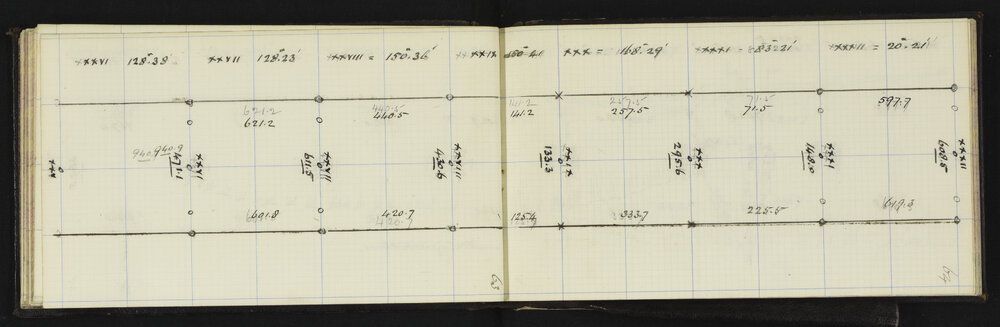 xxvi 128°38' xxvii 128°23' xxviii = 150°36' xxix 150°41' xxx = 168°29' xxxi = 83°21' xxxii = 20°21'
440.5 141.2 257.5 71.5
621.2 440.5 141.2 257.5 71.5 597.7
621.2
940.9 940.9 471.1 xxvi 611.5 xxvii 430.6 xxviii 133.3 295.6 xxx 148.0 xxxi 608.5 xxxii
691.8 420.7 125.4 333.7 225.5 619.3
420.7
63 64